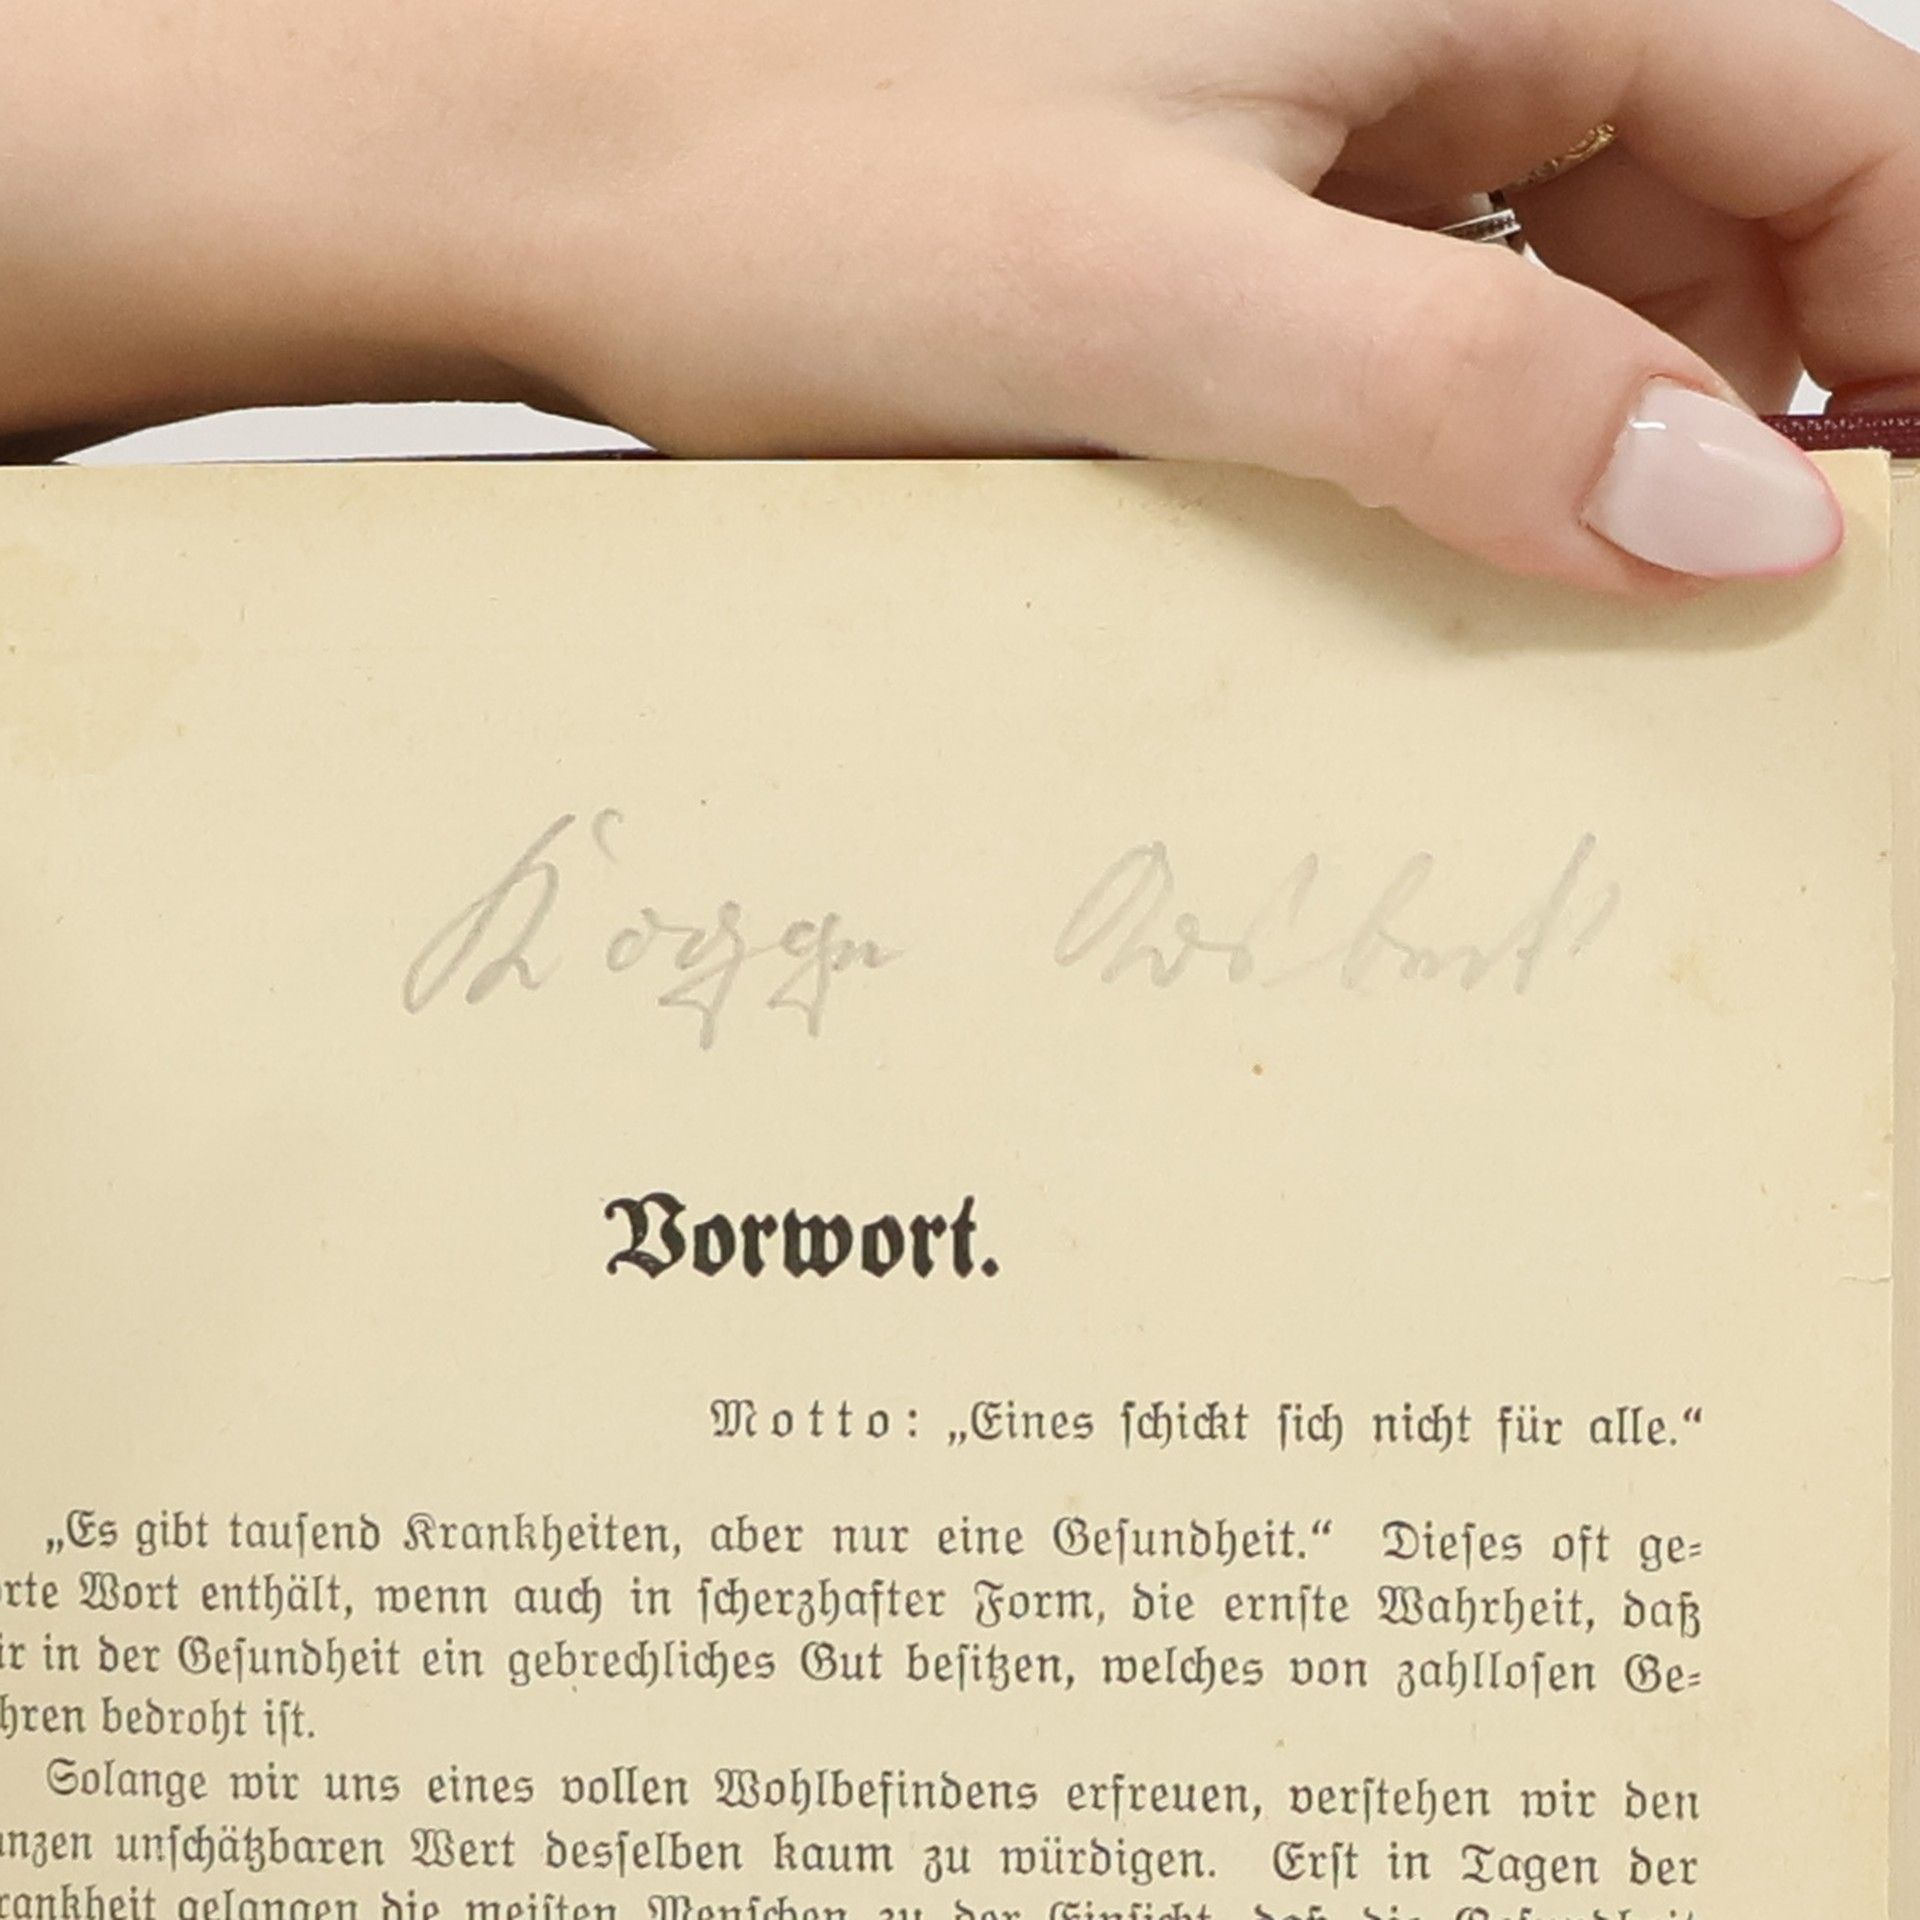 Vorwort.
Motto: „Eines ſchickt ſich nicht für alle.“
„Es gibt tauſend Krankheiten, aber nur eine Geſundheit.“ Dieſes oft ge=
rte Wort enthält, wenn auch in ſcherzhafter Form, die ernſte Wahrheit, daß
ir in der Geſundheit ein gebrechliches Gut beſitzen, welches von zahlloſen Ge=
hren bedroht iſt.
Solange wir uns eines vollen Wohlbefindens erfreuen, verſtehen wir den
nzen unſchätzbaren Wert desſelben kaum zu würdigen. Erſt in Tagen der
rankheit gelangen die meiſten Menſchen zu der Einſicht, daß die Geſundheit